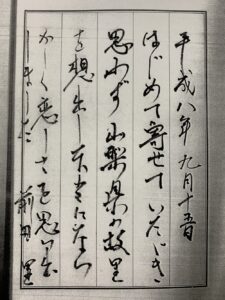 平成八年九月十五日
はじめて寄せていただき
思わず山梨県の故里
を想い出し本当になつ
かしく恋しさを思い出
しました
前田